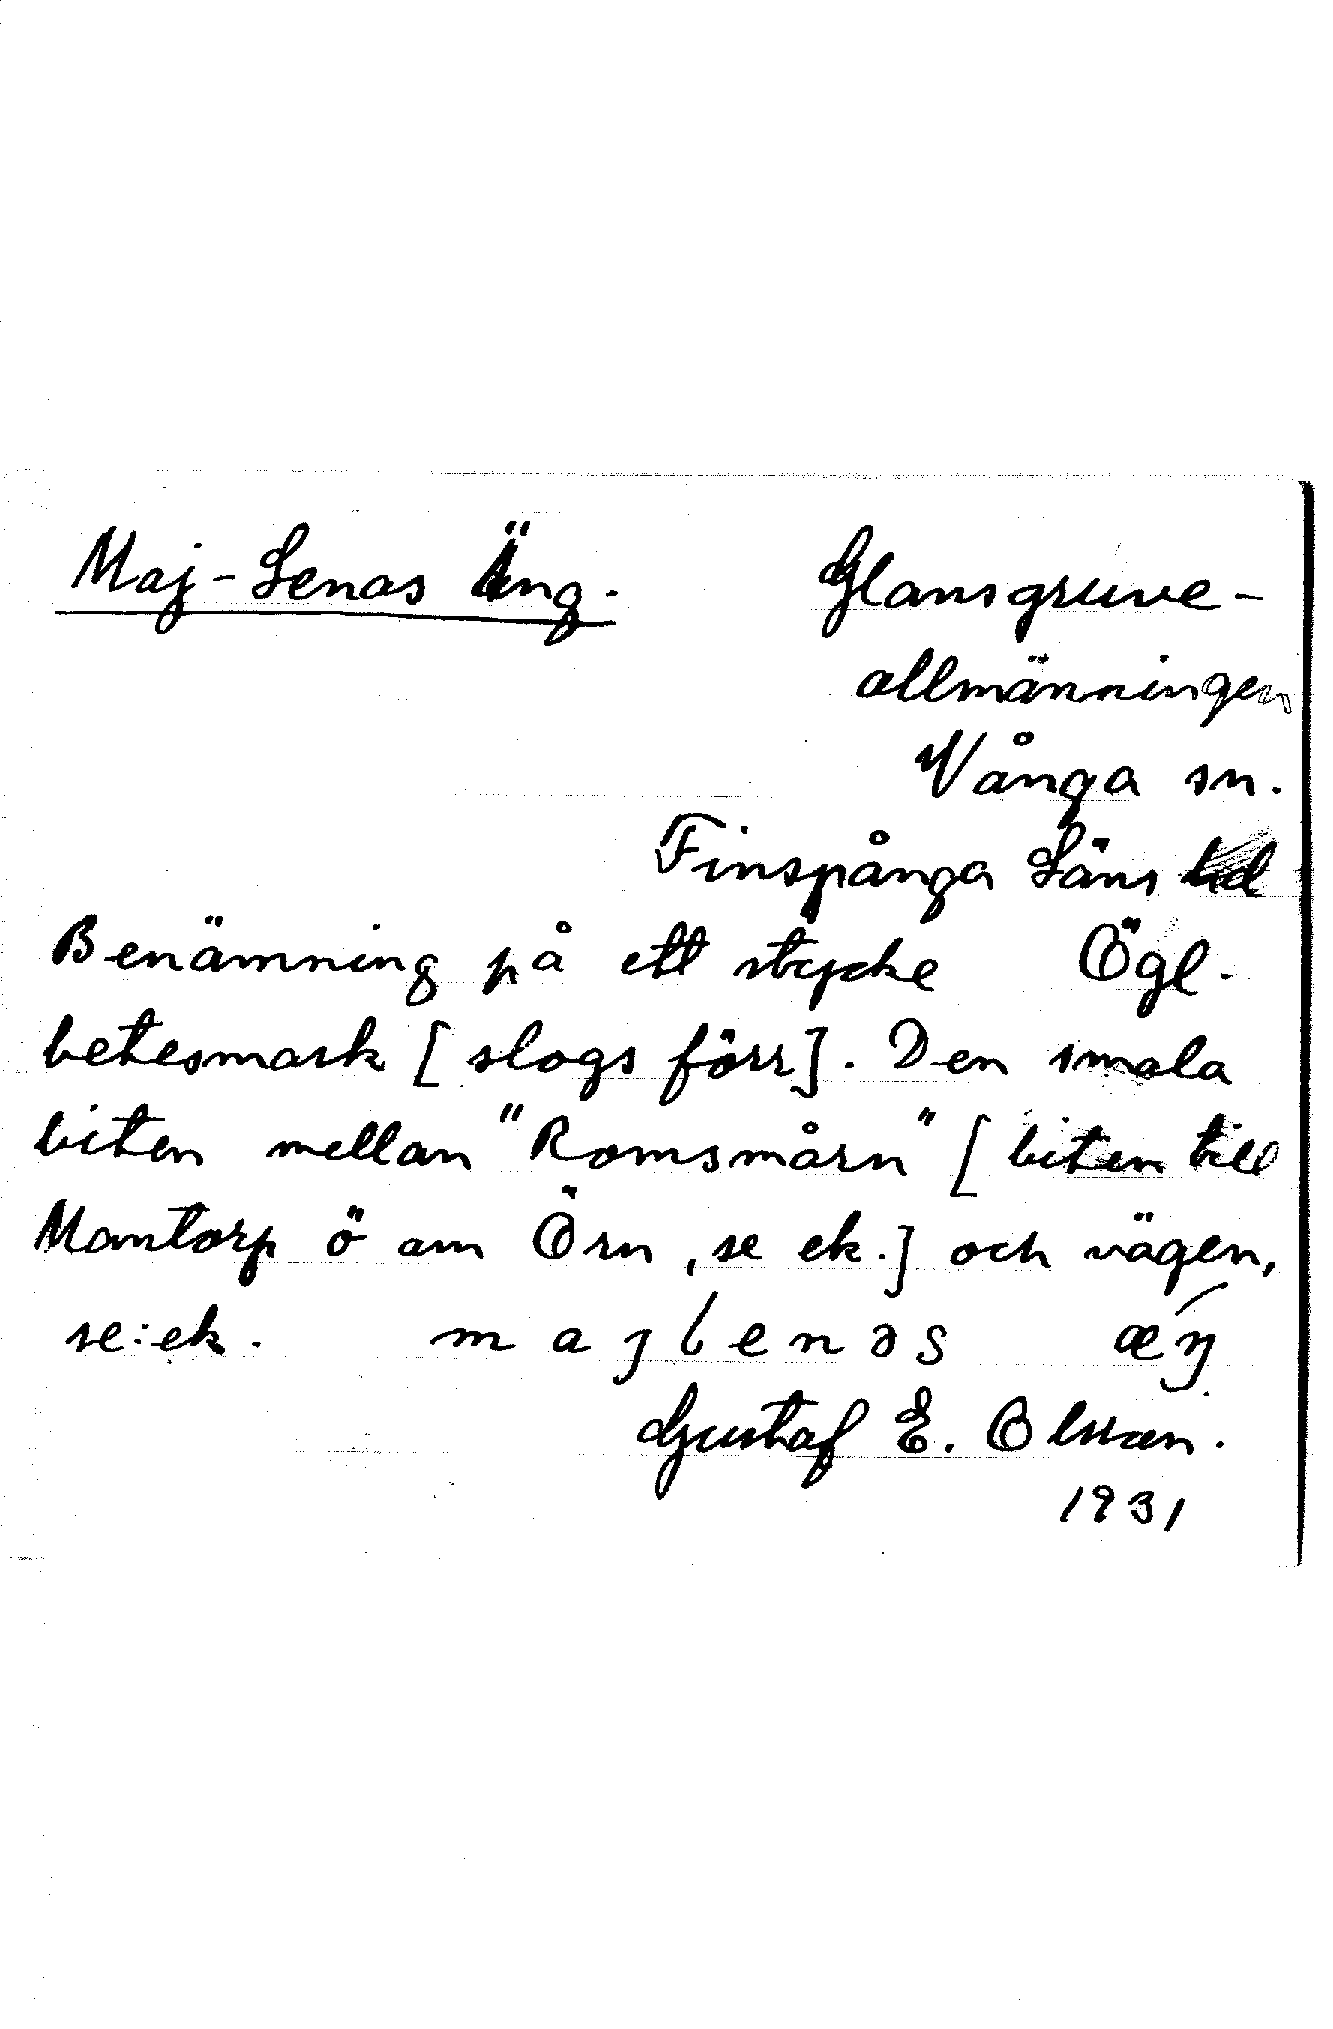 Maj-Lenas Äng. Glansgruve-
allmänningen
Vånga sn.
Finspånga Läns hd
Benämning på ett stycke Ögl.
betesmark [slogs förr]. Den smala
biten mellan "Romsmårn" [biten till
Mantorp ö om Örn, se ek.] och vägen,
se: ek. majlenas æŋ
Gustaf E. Olsson.
1931